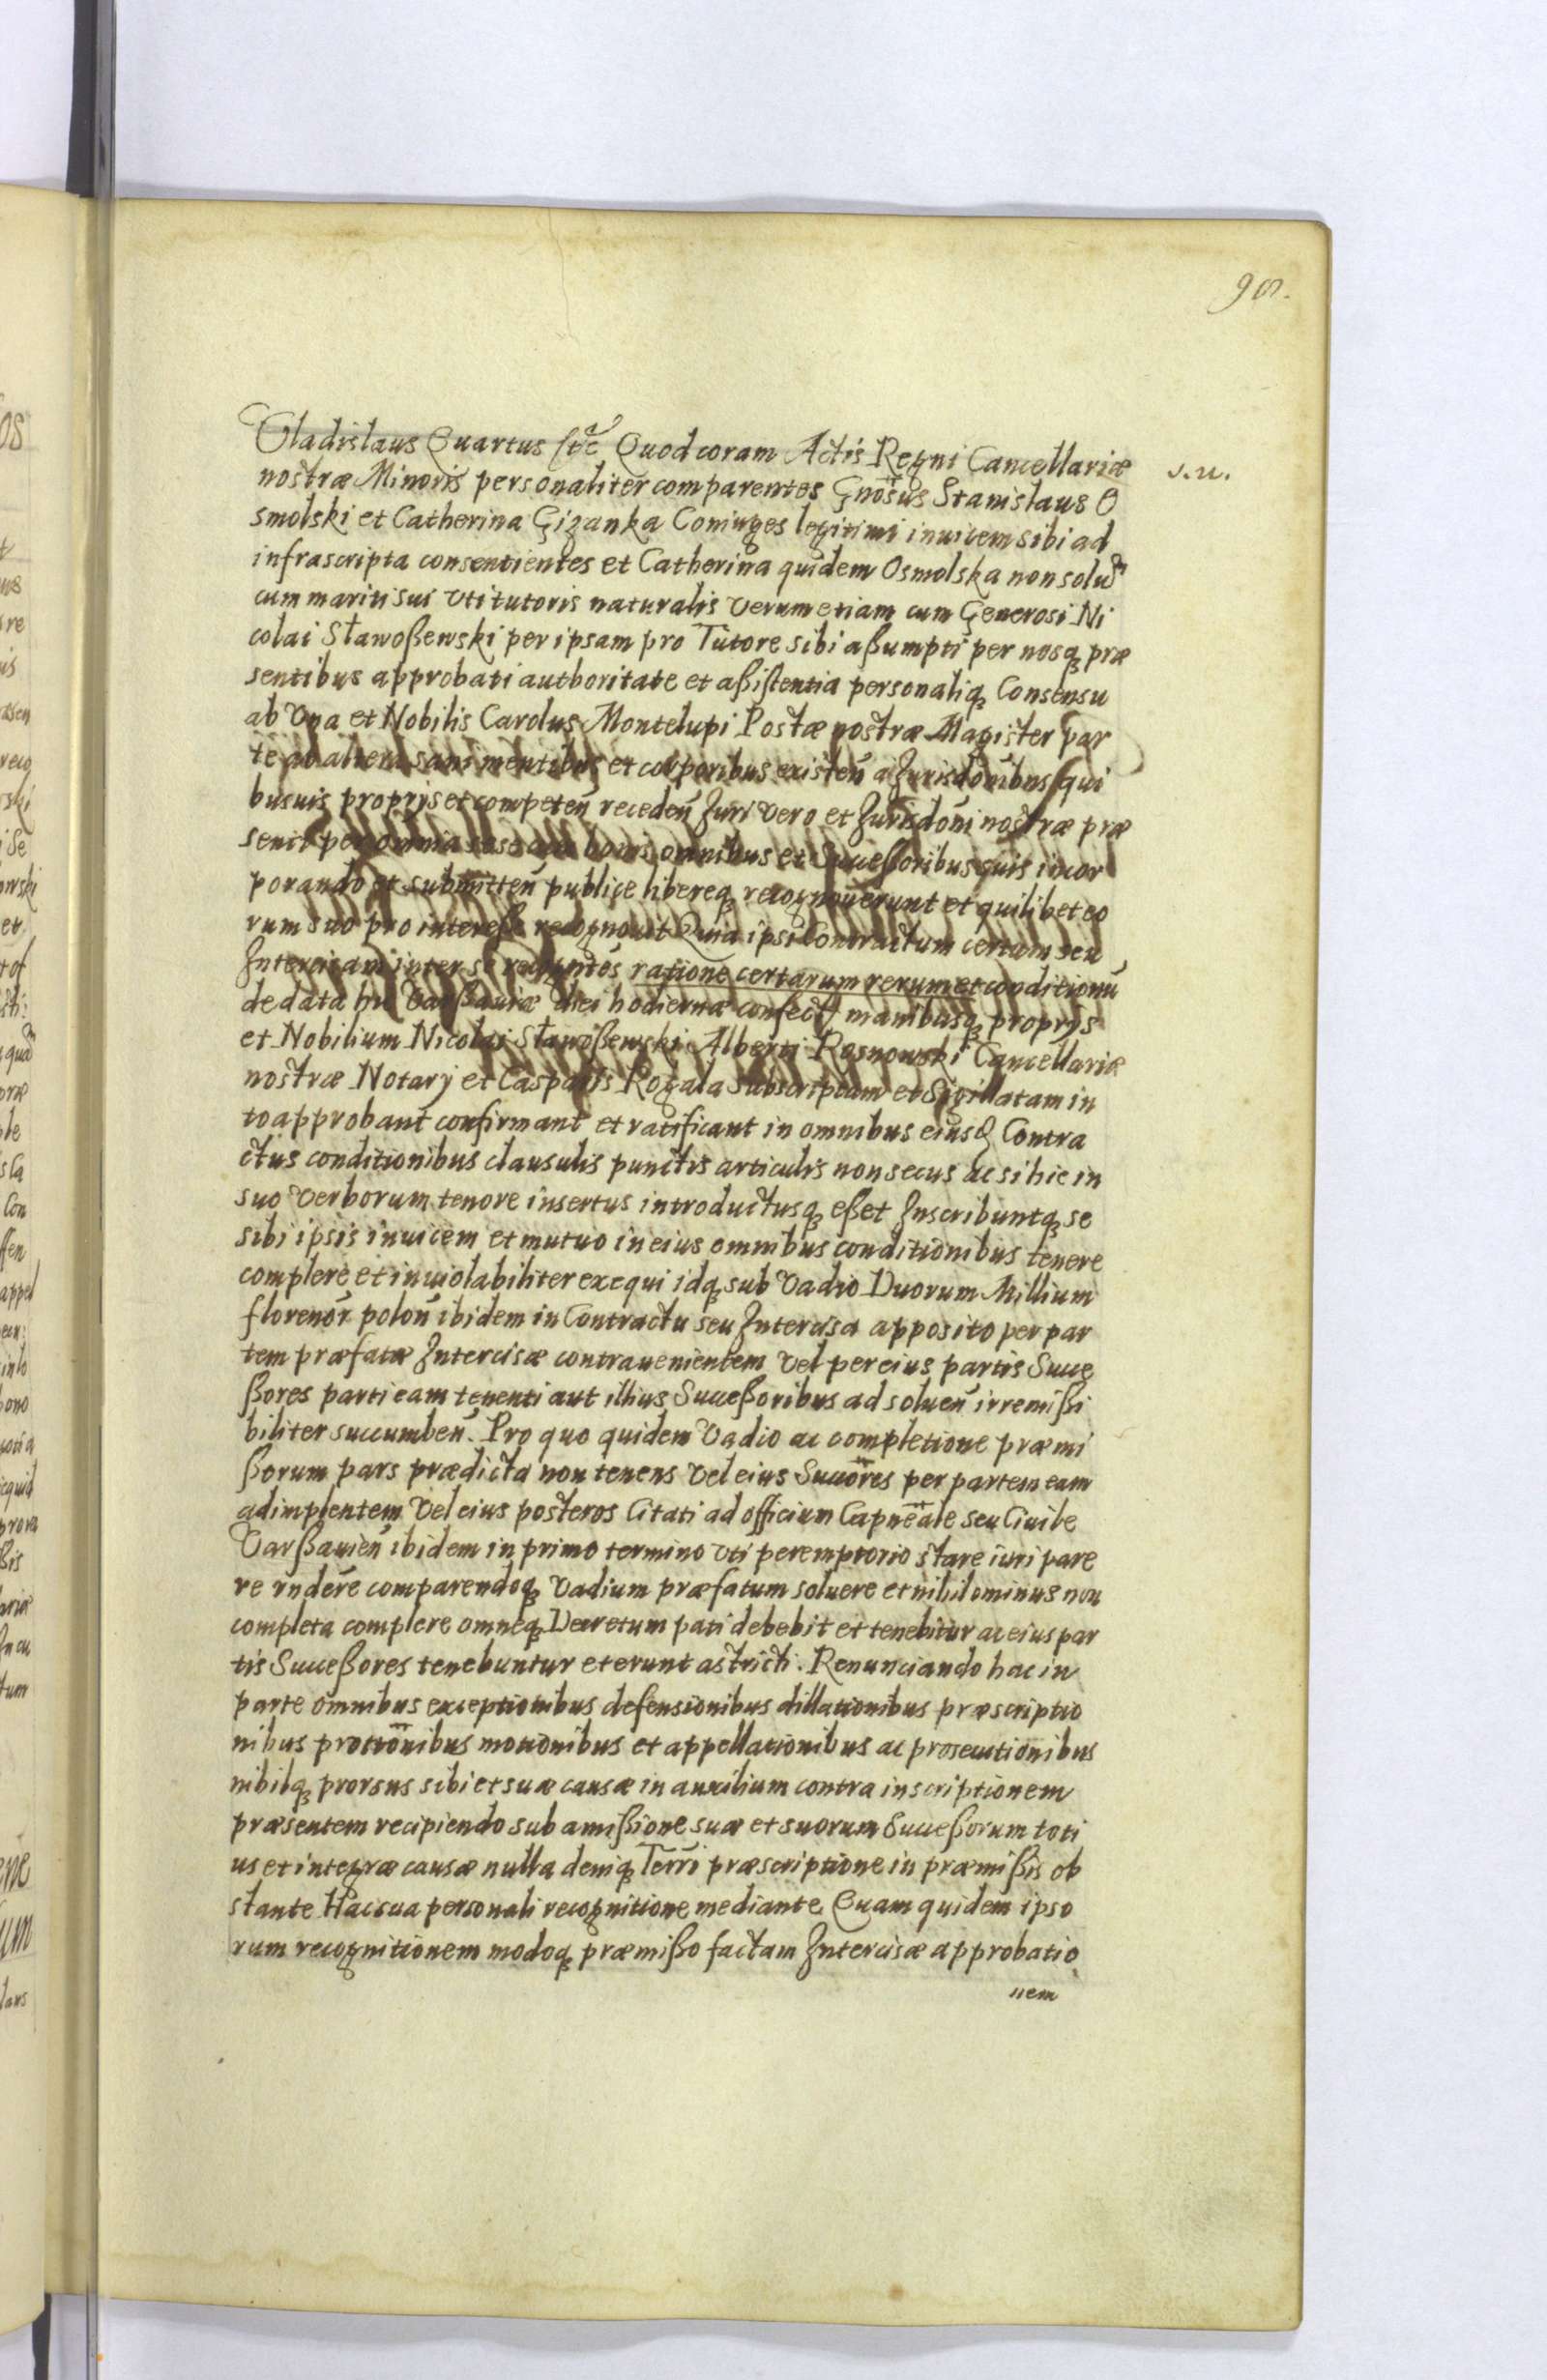 98.
Vladislaus Quartus etc Quod coram Actis Regni Cancellariæ
v.u.
nostræ Minoris personaliter comparentes Gnosus Stanislaus O
smolski et Catherina Gizanka Coniuges legitimi inuicem sibi ad
infrascripta consentientes et Catherina quidem Osmolska non solu
cum mariti sui vti tutoris naturalis verum etiam cum Generosi Ni
colai Stawoßewski per ipsam pro Tutore sibi aßumpti per nosq præ
sentibus approbati authoritate et aßistentia personaliq Consensu
ab vna et Nobilis Carolus Montelupi Postæ nostræ Magister par
te ab altera sani mentibus et corporibus existen̄ a Jurisdonibus qui
busuis proprijs et competen̄ receden̄ Juri vero et Jurisdoni nostræ præ
senti per omnia sese cum bonis omnibus et Succeßoribus suis incor
porando et submitten̄ publice libereq recognouerunt et quilibet eo
rum suo pro intereße recognouit Quia ipsi Contractum certum seu
Intercisam inter se recogntos ratione certarum rerum et conditionū
de data hic Varßauiæ diei hodiernæ confect manibusq proprijs
et Nobilium Nicolai Stawoßewski Alberti Rosnowski Cancellariæ
nostræ Notarij et Casparis Rogala subscriptam et Sigillatam in
to approbant confirmant et ratificant in omnibus eiusq Contra
ctus conditionibus clausulis punctis articulis non secus ac si hic in
suo verborum tenore insertus introductusq eßet Inscribuntq se
sibi ipsis inuicem et mutuo in eius omnibus conditionibus tenere
complere et inuiolabiliter exequi idq sub vadio Duorum Millium
florenor polon̄ ibidem in Contractu seu Intercisa apposito per par
tem præfatæ Intercisæ contrauenientem vel per eius partis Succe
ßores parti eam tenenti aut illius Succeßoribus ad soluen̄ irremißi
biliter succumben̄. Pro quo quidem vadio ac completione præmi
ßorum pars prædicta non tenens vel eius Succores per partem eam
adimplentem vel eius posteros Citati ad officium Capneale seu Ciuile
Varßauien̄ ibidem in primo termino vti peremptorio stare iuri pare
re rndere comparendoq vadium præfatum soluere et nihilominus non
completa complere omneq Decretum pati debebit et tenebitur ac eius par
tis Succeßores tenebuntur et erunt astricti. Renunciando hac in
parte omnibus exceptionibus defensionibus dillationibus præscriptio
nibus protionibus motionibus et appellationibus ac prosecutionibus
nihilq prorsus sibi et suæ causæ in auxilium contra inscriptionem
præsentem recipiendo sub amißione suæ et suorum Succeßorum toti
us et integræ causæ nulla deniq Terri præscriptione in præmißis ob
stante Hac sua personali recognitione mediante Quam quidem ipso
rum recognitionem modoq præmißo factam Intercisæ approbatio
nem